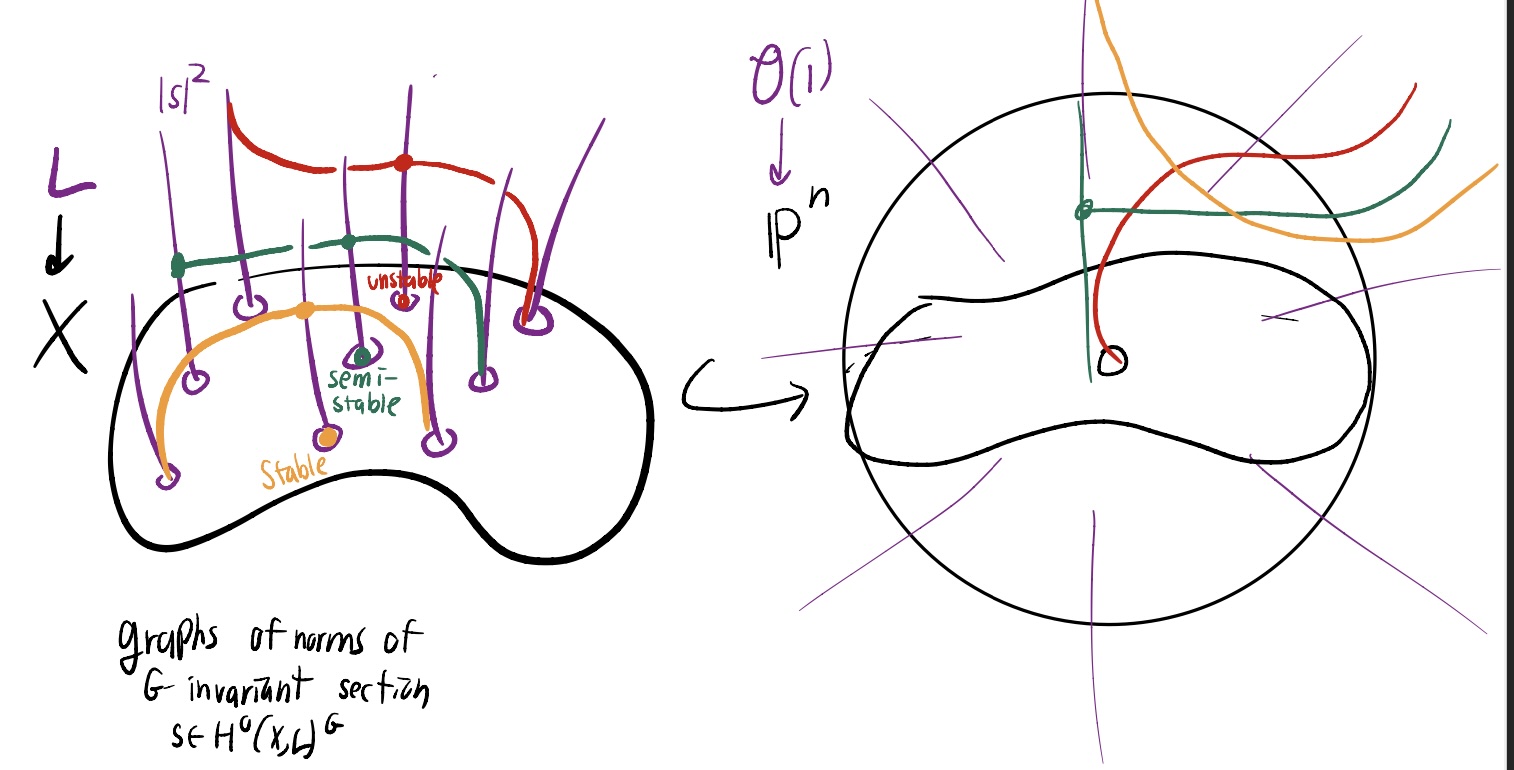 |s|²
L
↓
X
unstable
semi-
stable
Stable
graphs of norms of
G-invariant section
s∈H⁰(X,L)ᴳ
O(1)
↓
ℙⁿ